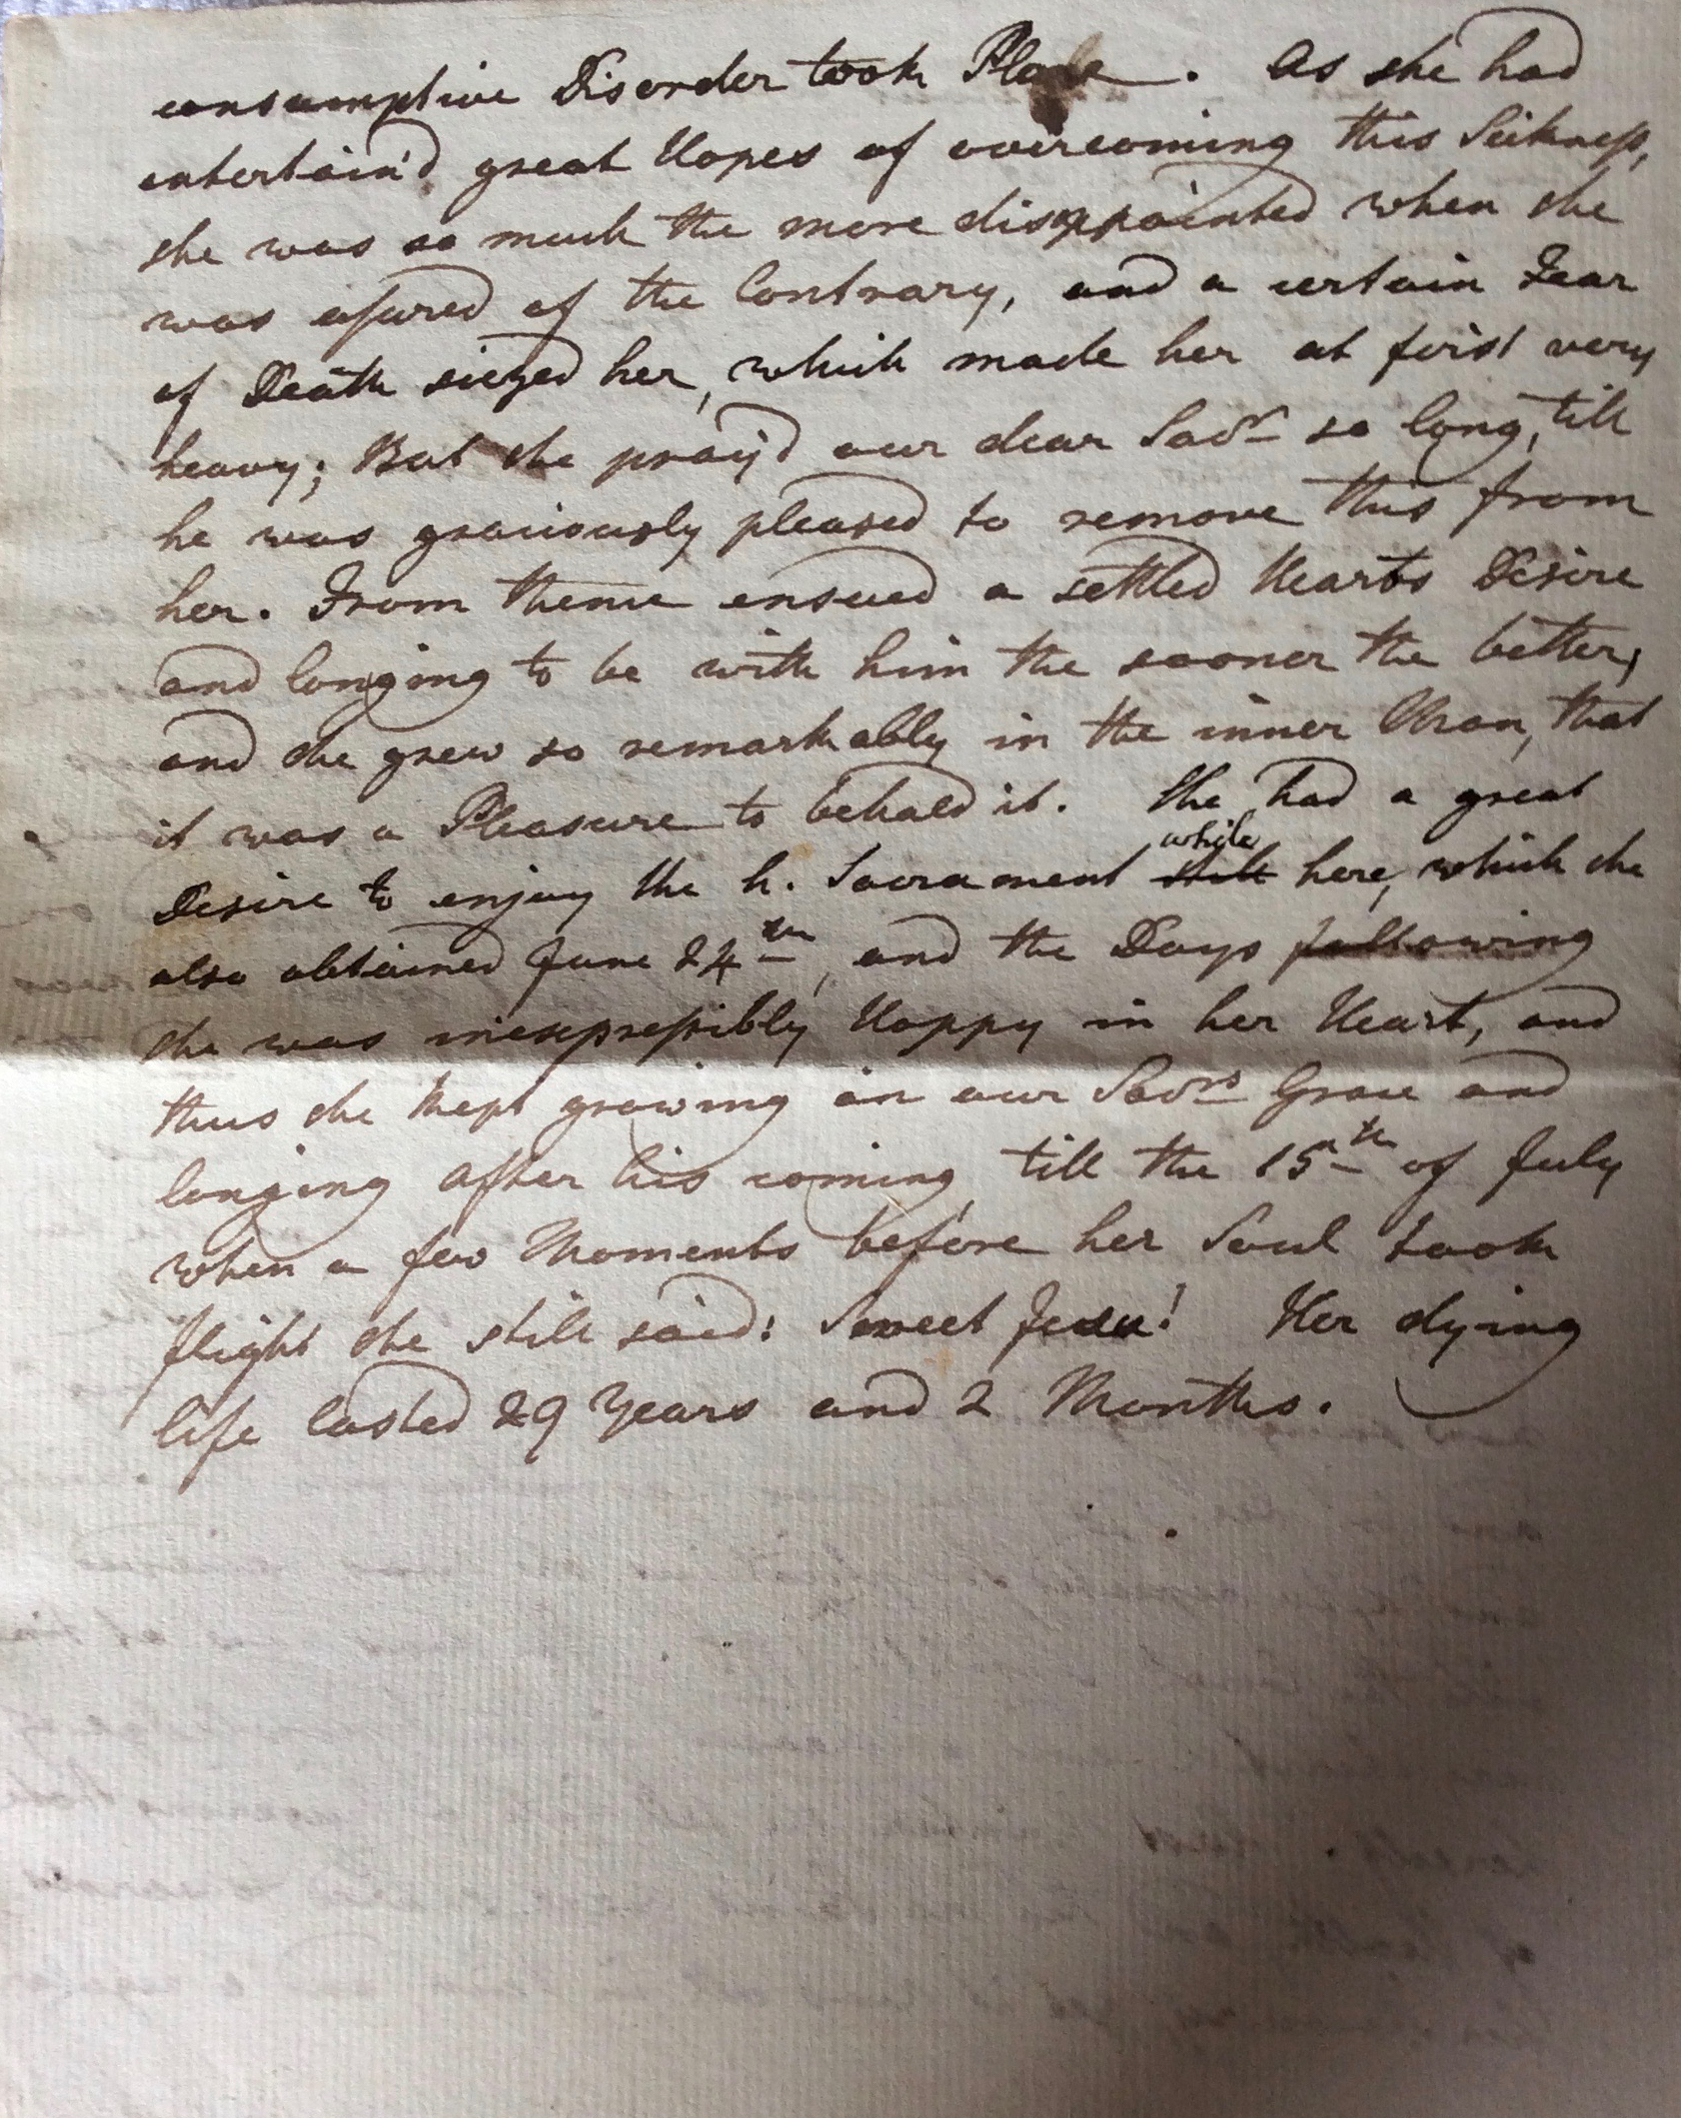 consumptive Disorder took Place. As she had
entertain'd great Hopes of overcoming this Sickness,
she was so much the more disappointed when she
was assured of the Contrary, and a certain Fear
of Death siezed her, which made her at first very
heavy; But she pray'd our dear Savr so long, till
he was graciously pleased to remove this from
her. From thence ensued a settled Hearts Desire
and longing to be with him the sooner the better,
and she grew so remarkably in the inner Man, that
it was a Pleasure to behold it. She had a great
while
Desire to enjoy the h. Sacrament still here, which she
also obtained June 24th, and the Days following
she was inexpressibly Happy in her Heart, and
thus she kept growing in our Savrs Grace and
longing after his coming, till the 15th of July
when a few Moments before her Soul took
flight she still said: Sweet Jesu! Her dying
life lasted 29 Years and 2 Months.